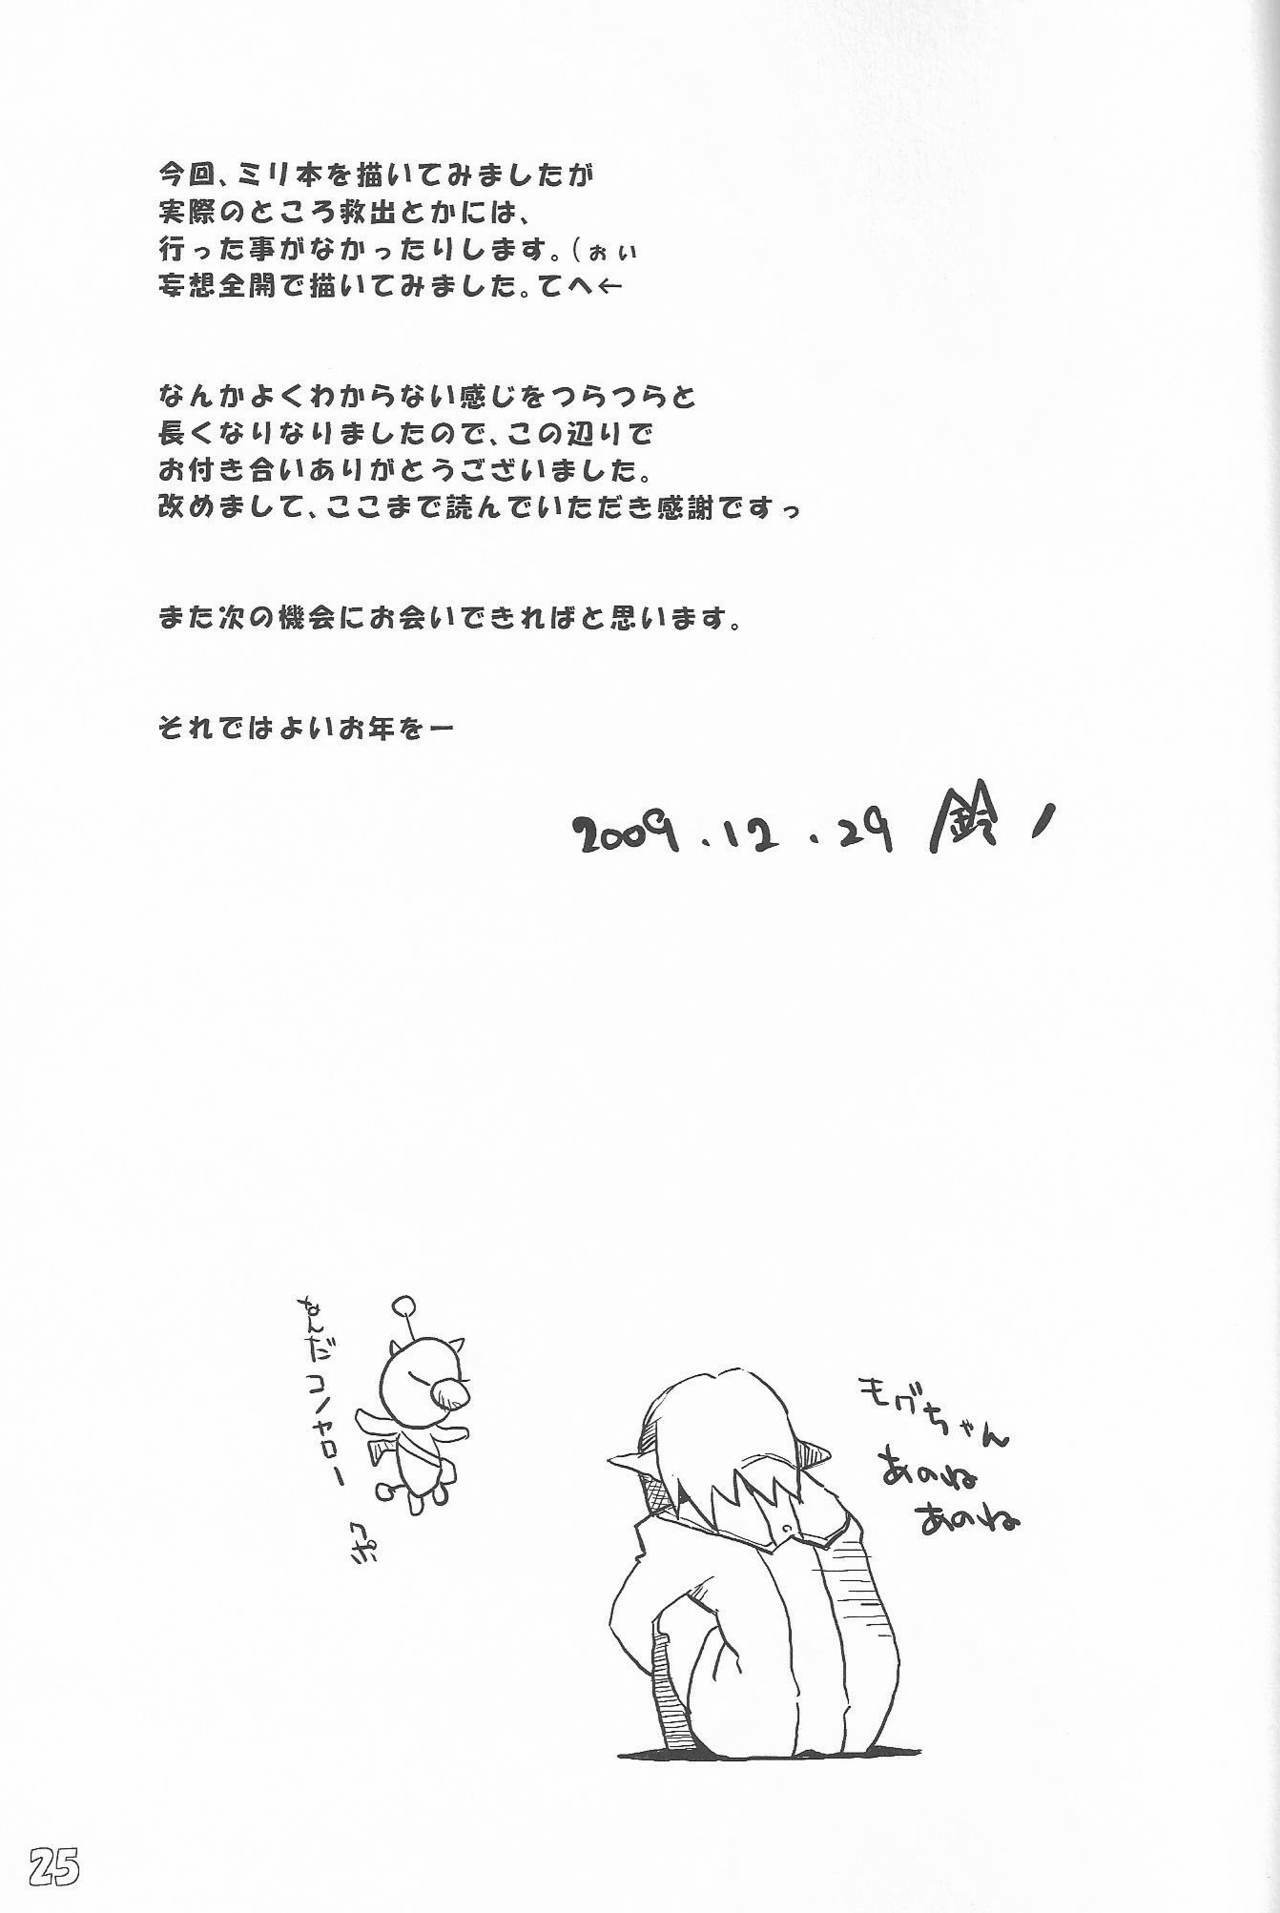 今回、ミリ本を描いてみましたが
実際のところ救出とかには、
行った事がなかったりします。（ぉぃ
妄想全開で描いてみました。てへ←
なんかよくわからない感じをつらつらと
長くなりなりましたので、この辺りで
お付き合いありがとうございました。
改めまして、ここまで読んでいただき感謝ですっ
また次の機会にお会いできればと思います。
それではよいお年をー
2009.12.29 鈴ノ
なんだコノヤロー
クポ
モグちゃん
あのね
あのね
25